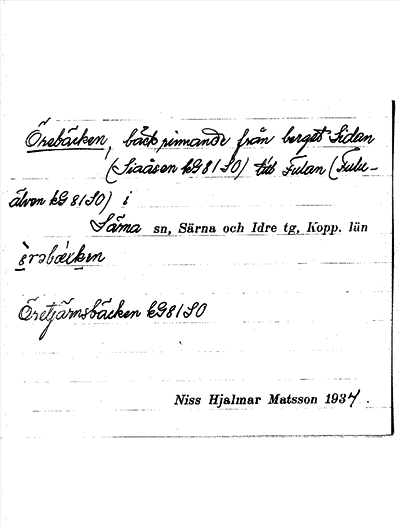 Örebäcken, bäck rinnande från berget Sidan
(Siaåsen kG 81 SO) till Fulan (Fulu-
älven kG 81 SO) i
Särna sn, Särna och Idre tg, Kopp. län
Öretjärnsbäcken kG 81 SO
Niss Hjalmar Matsson 1937.